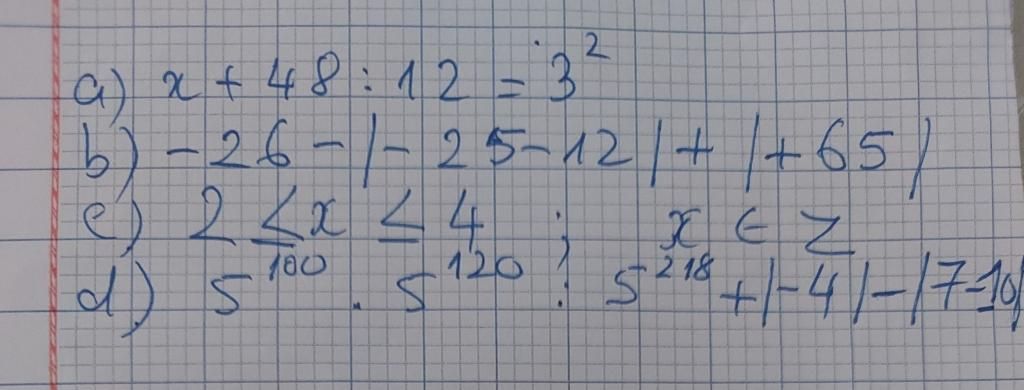 a) x + 48 : 12 = 3²
b) - 26 - |- 25 - 12| + |+ 65|
c) 2 ≤ x ≤ 4 ; x ∈ Z
d) 5¹⁰⁰ . 5¹²⁰ : 5²¹⁸ + |-4| - |7-10|